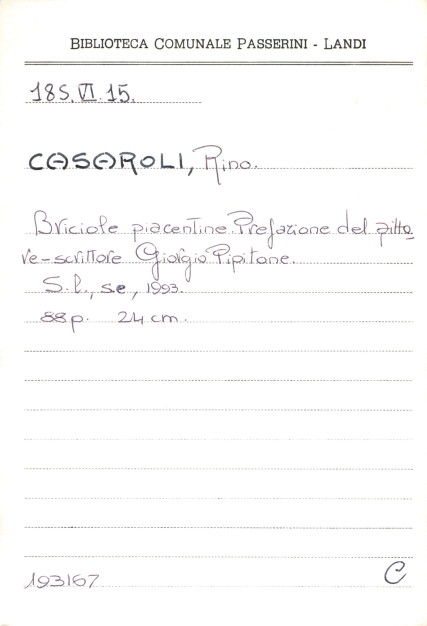 BIBLIOTECA COMUNALE PASSERINI - LANDI
185.VI.15.
CASAROLI, Rino.
Briciole piacentine. Prefazione del pitto
re-scrittore Giorgio Pipitone.
S.l., se, 1993.
88p. 24 cm.
193167
C